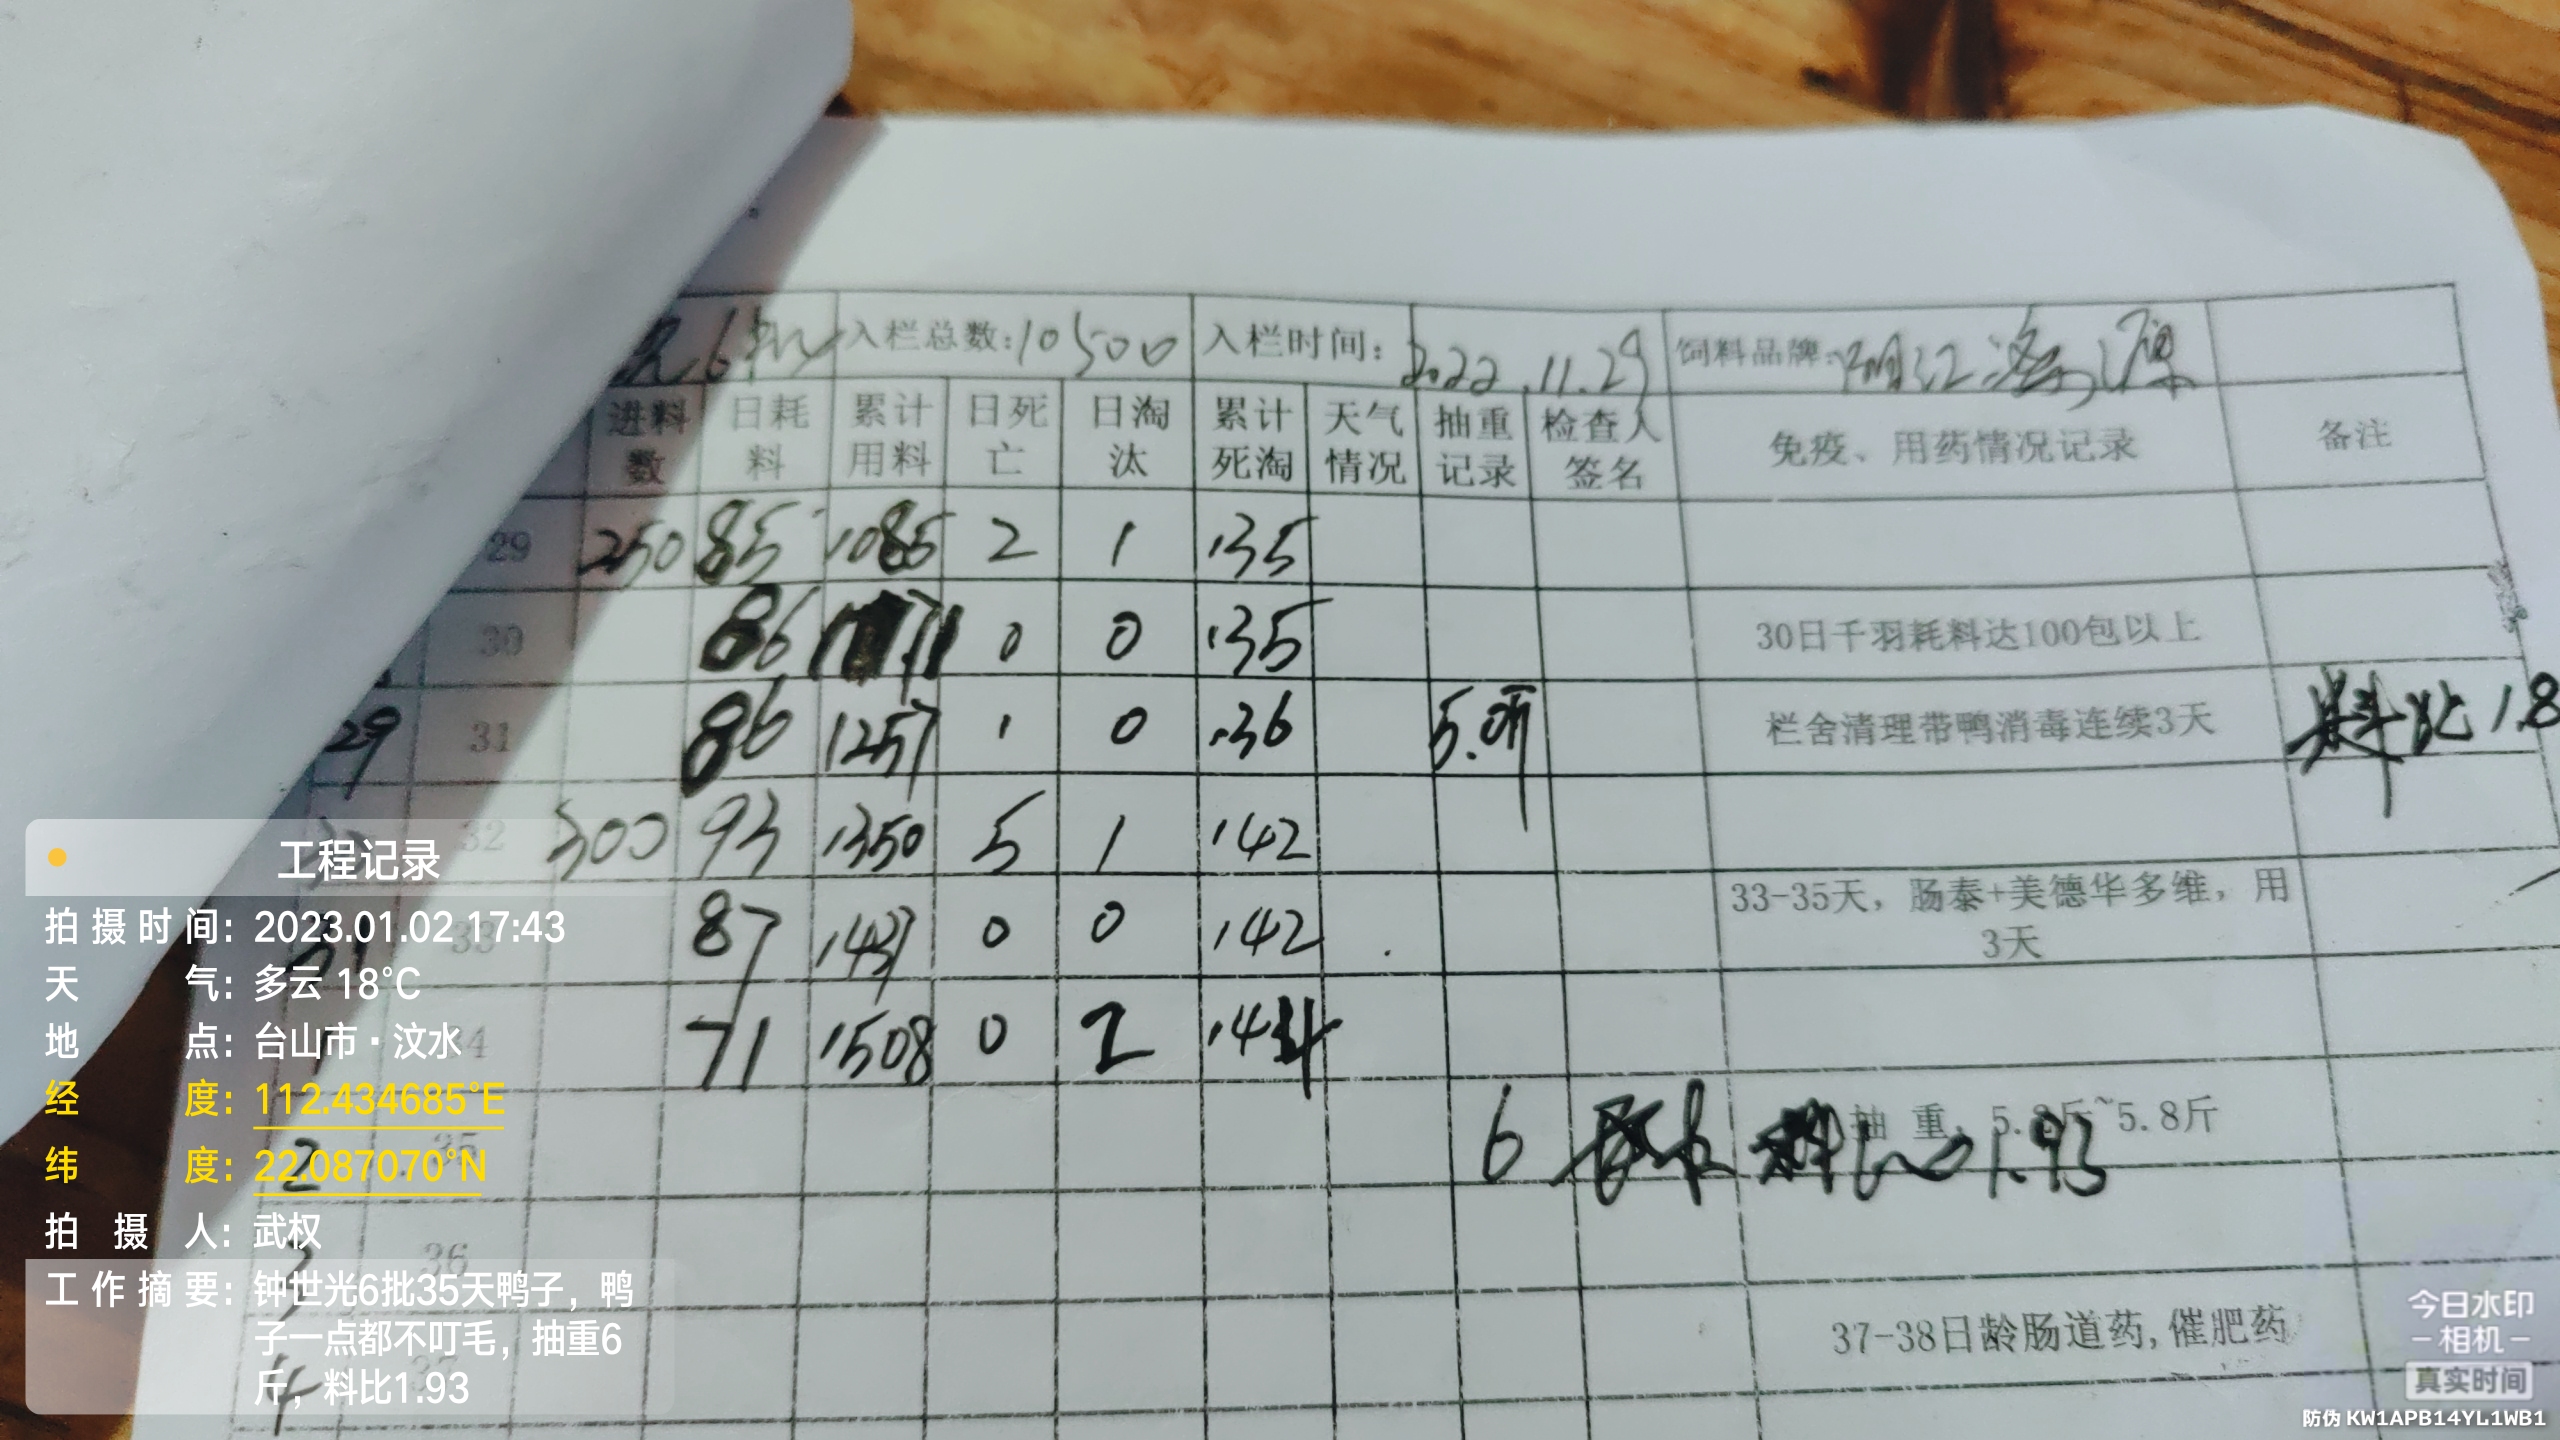 光6批 入栏总数:10500 入栏时间: 2022.11.29 饲料品牌: 阳江海源
进料数 日耗料 累计用料 日死亡 日淘汰 累计死淘 天气情况 抽重记录 检查人签名 免疫、用药情况记录 备注
29 250 85 1085 2 1 135
30 86 1171 0 0 135 30日千羽耗料达100包以上
29 31 86 1257 1 0 136 5.0斤 栏舍清理带鸭消毒连续3天 料比1.8
32 300 93 1350 5 1 142
31 33 87 1437 0 0 142 33-35天,肠泰+美德华多维,用3天
1 34 71 1508 0 2 144
2 35 6 料比1.93 抽重:5. 斤~5.8斤
3 36
4 37 37-38日龄肠道药,催肥药
工程记录
拍摄时间: 2023.01.02 17:43
天气: 多云 18°C
地点: 台山市·汶水
经度: 112.434685°E
纬度: 22.087070°N
拍摄人: 武权
工作摘要: 钟世光6批35天鸭子,鸭
子一点都不叮毛,抽重6
斤,料比1.93
今日水印
-相机-
真实时间
防伪 KW1APB14YL1WB1